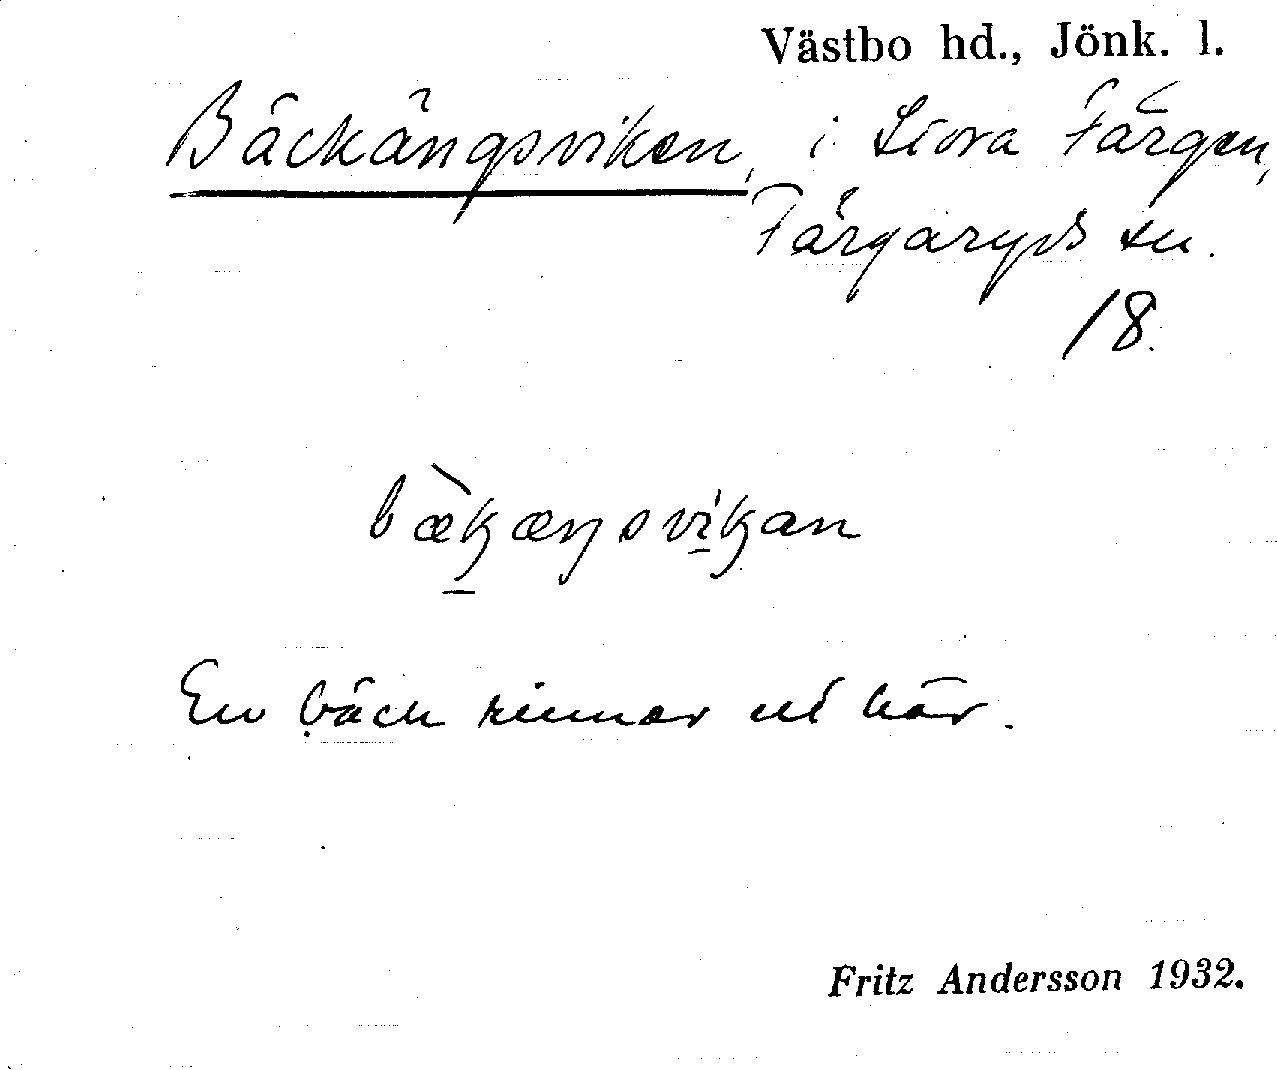 Västbo hd., Jönk. l.
Bäckängsviken, i Stora Färgen,
Färgaryds sn.
18.
bæ̀kæŋsvikan
En bäck rinner ut här.
Fritz Andersson 1932.